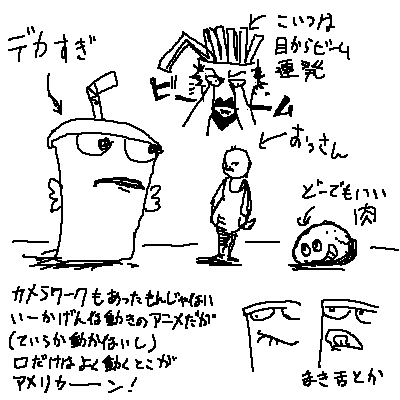 デカすぎ
こいつは
目からビーム
連発
ビーム
おっさん
どーでもいい
肉
カメラワークもあったもんじゃない
いーかげんな動きのアニメだが
(ていうか動かないし)
口だけはよく動くとこが
アメリカーーン!
まき舌とか